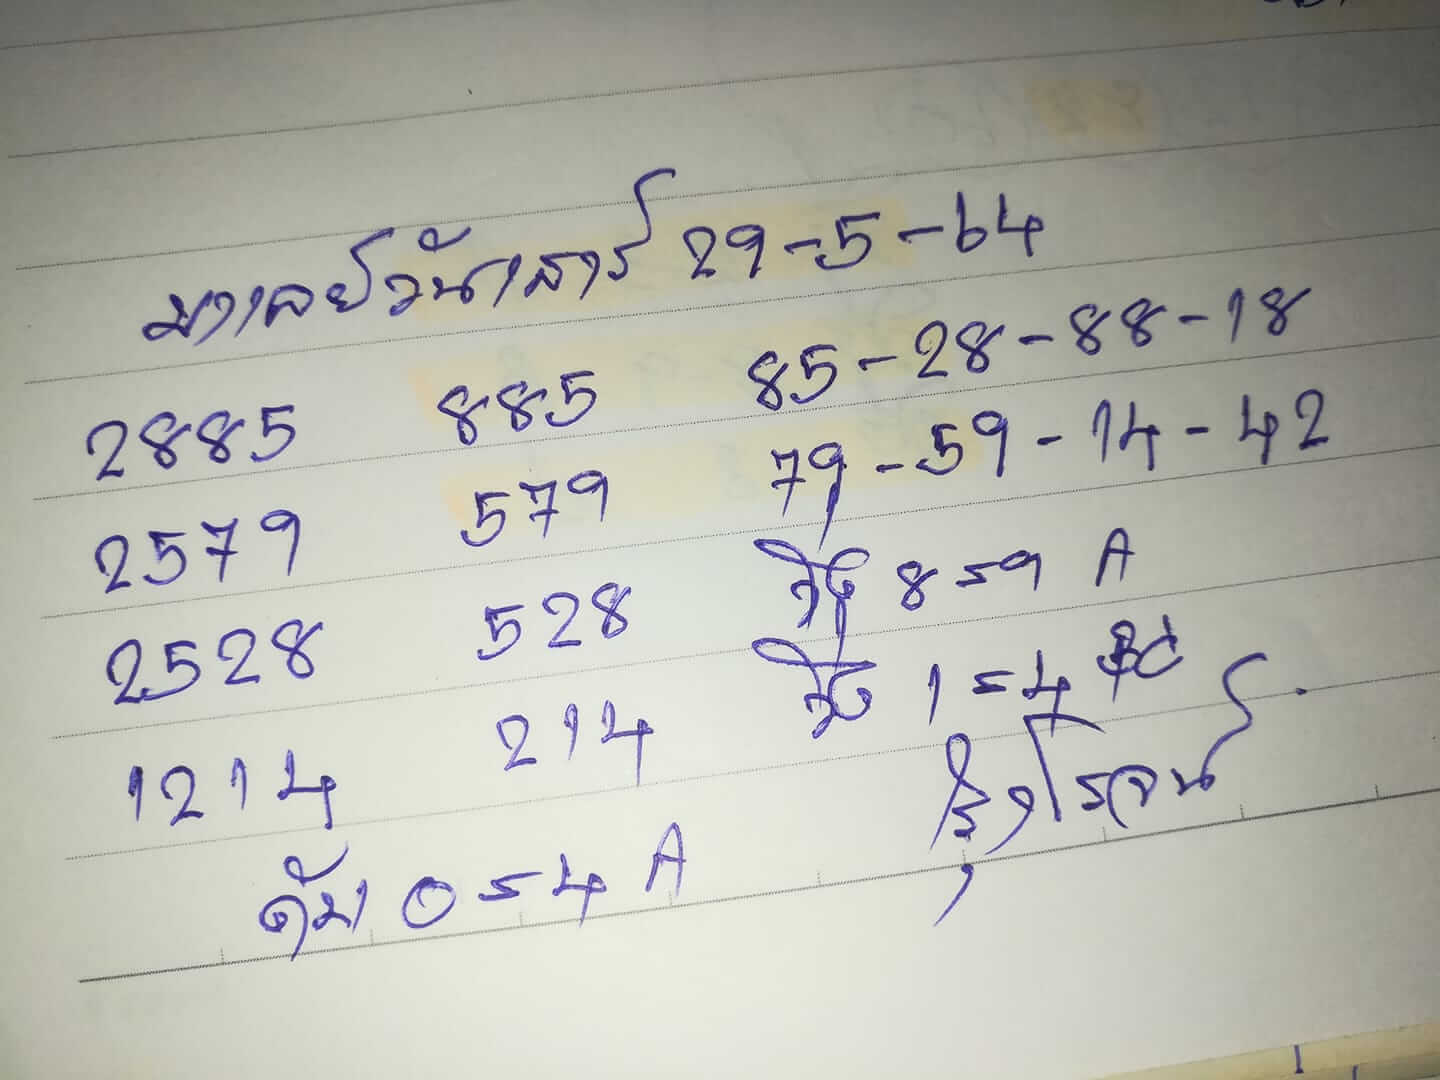 มาเลย์วันเสาร์ 29-5-64
2885 885 85-28-88-18
2579 579 79-59-14-42
2528 528 วิ่ง 8=9 A
1214 214 วิ่ง 1=4
0=4 A